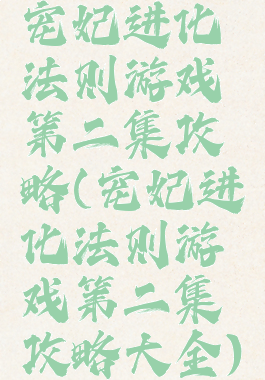 宠妃进化
法则游戏
第二集攻
略(宠妃进
化法则游
戏第二集
攻略大全)